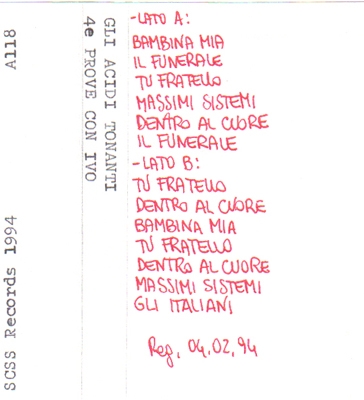 -LATO A:
BAMBINA MIA
IL FUNERALE
TU FRATELLO
MASSIMI SISTEMI
DENTRO AL CUORE
IL FUNERALE
-LATO B:
TU FRATELLO
DENTRO AL CUORE
BAMBINA MIA
TU FRATELLO
DENTRO AL CUORE
MASSIMI SISTEMI
GLI ITALIANI
Reg. 04.02.94
GLI ACIDI TONANTI
4e PROVE CON IVO
SCSS Records 1994 A118